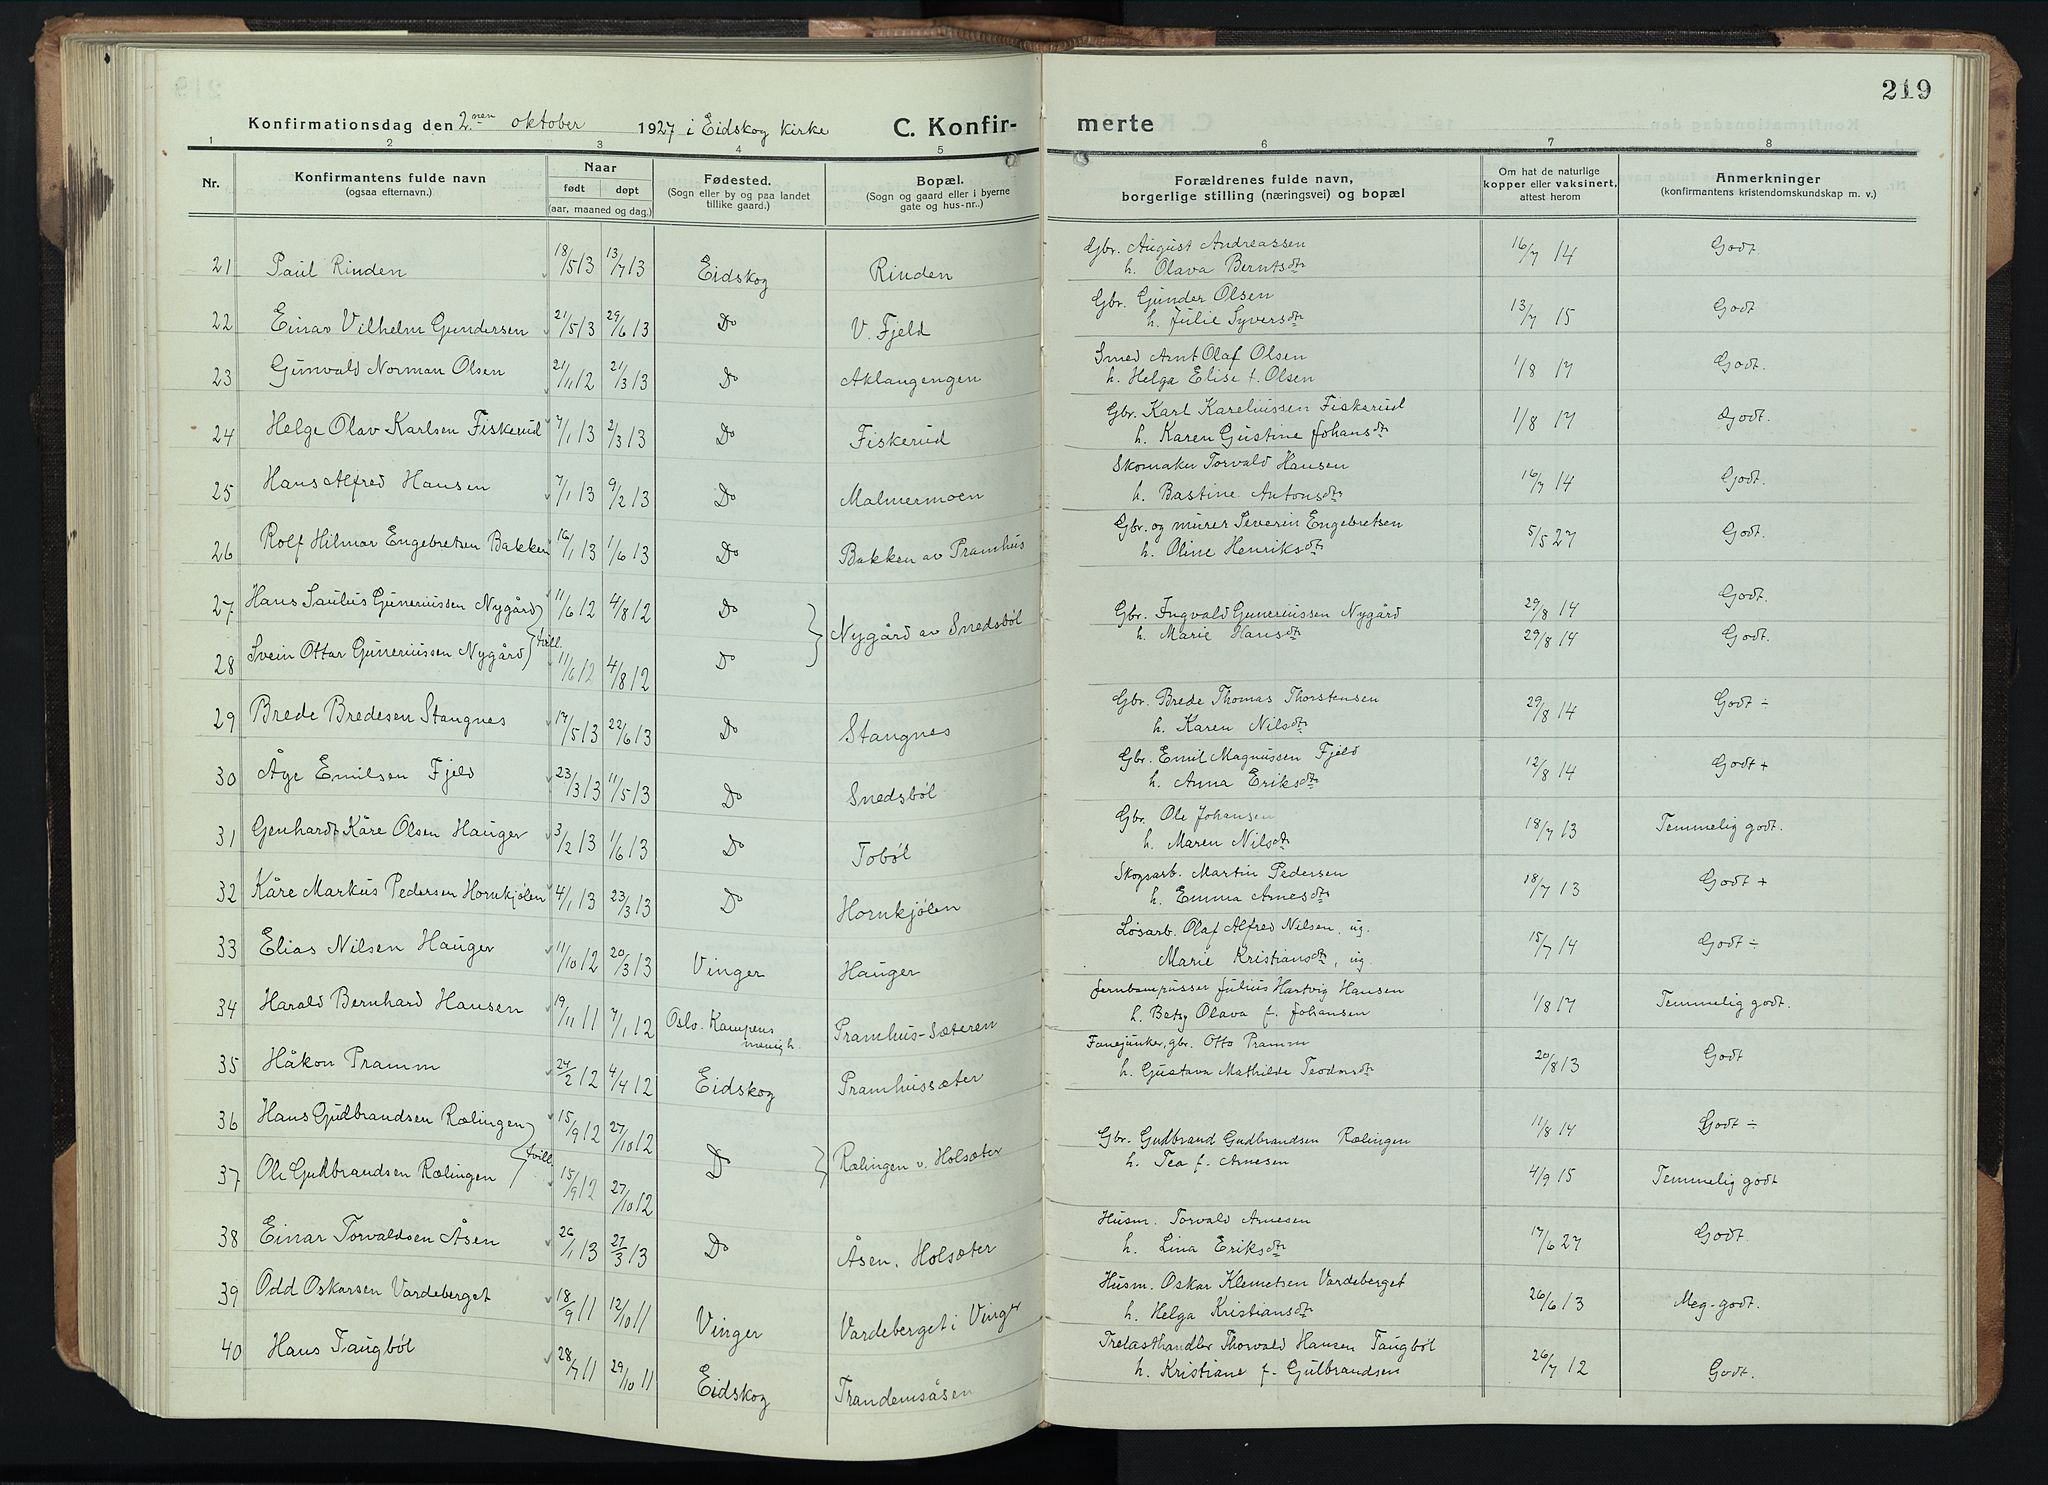 219
Konfirmationsdag den 2.nen oktober 1927 i Eidskog kirke C. Konfirmerte
1 2 3 4 5 6 7 8
Nr. Konfirmantens fulde navn (ogsaa efternavn.) Naar født døpt (aar, maaned og dag.) Fødested. (Sogn eller by og paa landet tillike gaard.) Bopæl. (Sogn og gaard eller i byerne gate og hus-nr..) Forældrenes fulde navn, borgerlige stilling (næringsvei) og bopæl Om hat de naturlige kopper eller vaksinert, attest herom Anmerkninger (konfirmantens kristendomskundskap m. v.)
21 Paul Rinden 18/5 13 13/7 13 Eidskog Rinden Gbr. August Andreassen 16/7 14 Godt.
h. Olava Berntsdtr
22 Einar Vilhelm Gundersen 21/5 13 29/6 13 Do V. Fjeld Gbr. Gunder Olsen 13/7 15 Godt
h. Julie Syversdtr
23 Gunvald Norman Olsen 21/11 12 21/3 13 Do Aklangengen Smed Arnt Olaf Olsen 1/8 17 Godt.
h. Helga Elise f. Olsen
24 Helge Olav Karlsen Fiskerud 7/1 13 2/3 13 Do Fiskerud Gbr. Karl Kareliussen Fiskerud 1/8 17 Godt.
h. Karen Gustine Johansdtr
25 Hans Alfred Hansen 7/1 13 9/2 13 Do Malmermoen Skomaker Torvald Hansen 16/7 14 Godt.
h. Bastine Antonsdtr
26 Rolf Hilmar Engebretsen Bakken 16/1 13 1/6 13 Do Bakken av Pramhus Gbr. og murer Severin Engebretsen 5/5 27 Godt.
h. Oline Henriksdtr
27 Hans Paulus Guneriussen Nygård 11/6 12 4/8 12 Do Nygård av Snedsbøl Gbr. Ingvald Guneriussen Nygård 29/8 14 Godt.
28 Svein Ottar Guneriussen Nygård tvill. 11/6 12 4/8 12 Do h. Marie Hansdtr 29/8 14 Godt.
29 Brede Bredesen Stangnes 17/5 13 22/6 13 Do Stangnes Gbr. Brede Thomas Thorstensen 29/8 14 Godt ÷
h. Karen Nilsdtr
30 Åge Emilsen Fjeld 23/3 13 11/5 13 Do Snedsbøl Gbr. Emil Magnussen Fjeld 12/8 14 Godt +
h. Anna Eriksdtr
31 Genhardt Kåre Olsen Hauger 3/2 13 1/6 13 Do Tobøl Gbr. Ole Johansen 18/7 13 Temmelig godt.
h. Maren Nilsdtr
32 Kåre Markus Pedersen Hornkjølen 4/1 13 23/3 13 Do Hornkjølen Skogsarb. Martin Pedersen 18/7 13 Godt +
h. Emma Arnesdtr
33 Elias Nilsen Hauger 11/10 12 20/3 13 Vinger Hauger Løsarb. Olaf Alfred Nilsen, ug. 15/7 14 Godt ÷
Marie Kristiansdtr, ug.
34 Harald Bernhard Hansen 19/11 11 7/1 12 Oslo. Kampens menigh. Pramhus-Sæteren Jernbanepusser Julius Hartvig Hansen 1/8 17 Temmelig godt.
h. Betsy Olava f. Johansen
35 Håkon Pramm 24/2 12 4/4 12 Eidskog Pramhussæter Fanejunker, gbr. Otto Pramm 20/8 13 Godt
h. Gustava Mathilde Teodorsdtr
36 Hans Gudbrandsen Rælingen 15/9 12 27/10 12 Do Rælingen v. Holsæter Gbr. Gudbrand Gudbrandsen Rælingen 11/8 14 Godt ÷
37 Ole Gudbrandsen Rælingen tvill. 15/9 12 27/10 12 h. Tea f. Arnesen 4/9 15 Temmelig godt
38 Einar Torvaldsen Åsen 26/1 13 27/3 13 Do Åsen, Holsæter Husm. Torvald Arnesen 17/6 27 Godt.
h. Lina Eriksdtr
39 Odd Oskarsen Vardeberget 18/9 11 12/10 11 Vinger Vardeberget i Vinger Husm. Oskar Klemetsen Vardeberget 26/6 13 Meg. godt.
h. Helga Kristiansdtr
40 Hans Taugbøl 28/7 11 29/10 11 Eidskog Trandemsåsen Trelasthandler Thorvald Hansen Taugbøl 26/7 12 Godt.
h. Kristiane f. Gulbrandsen